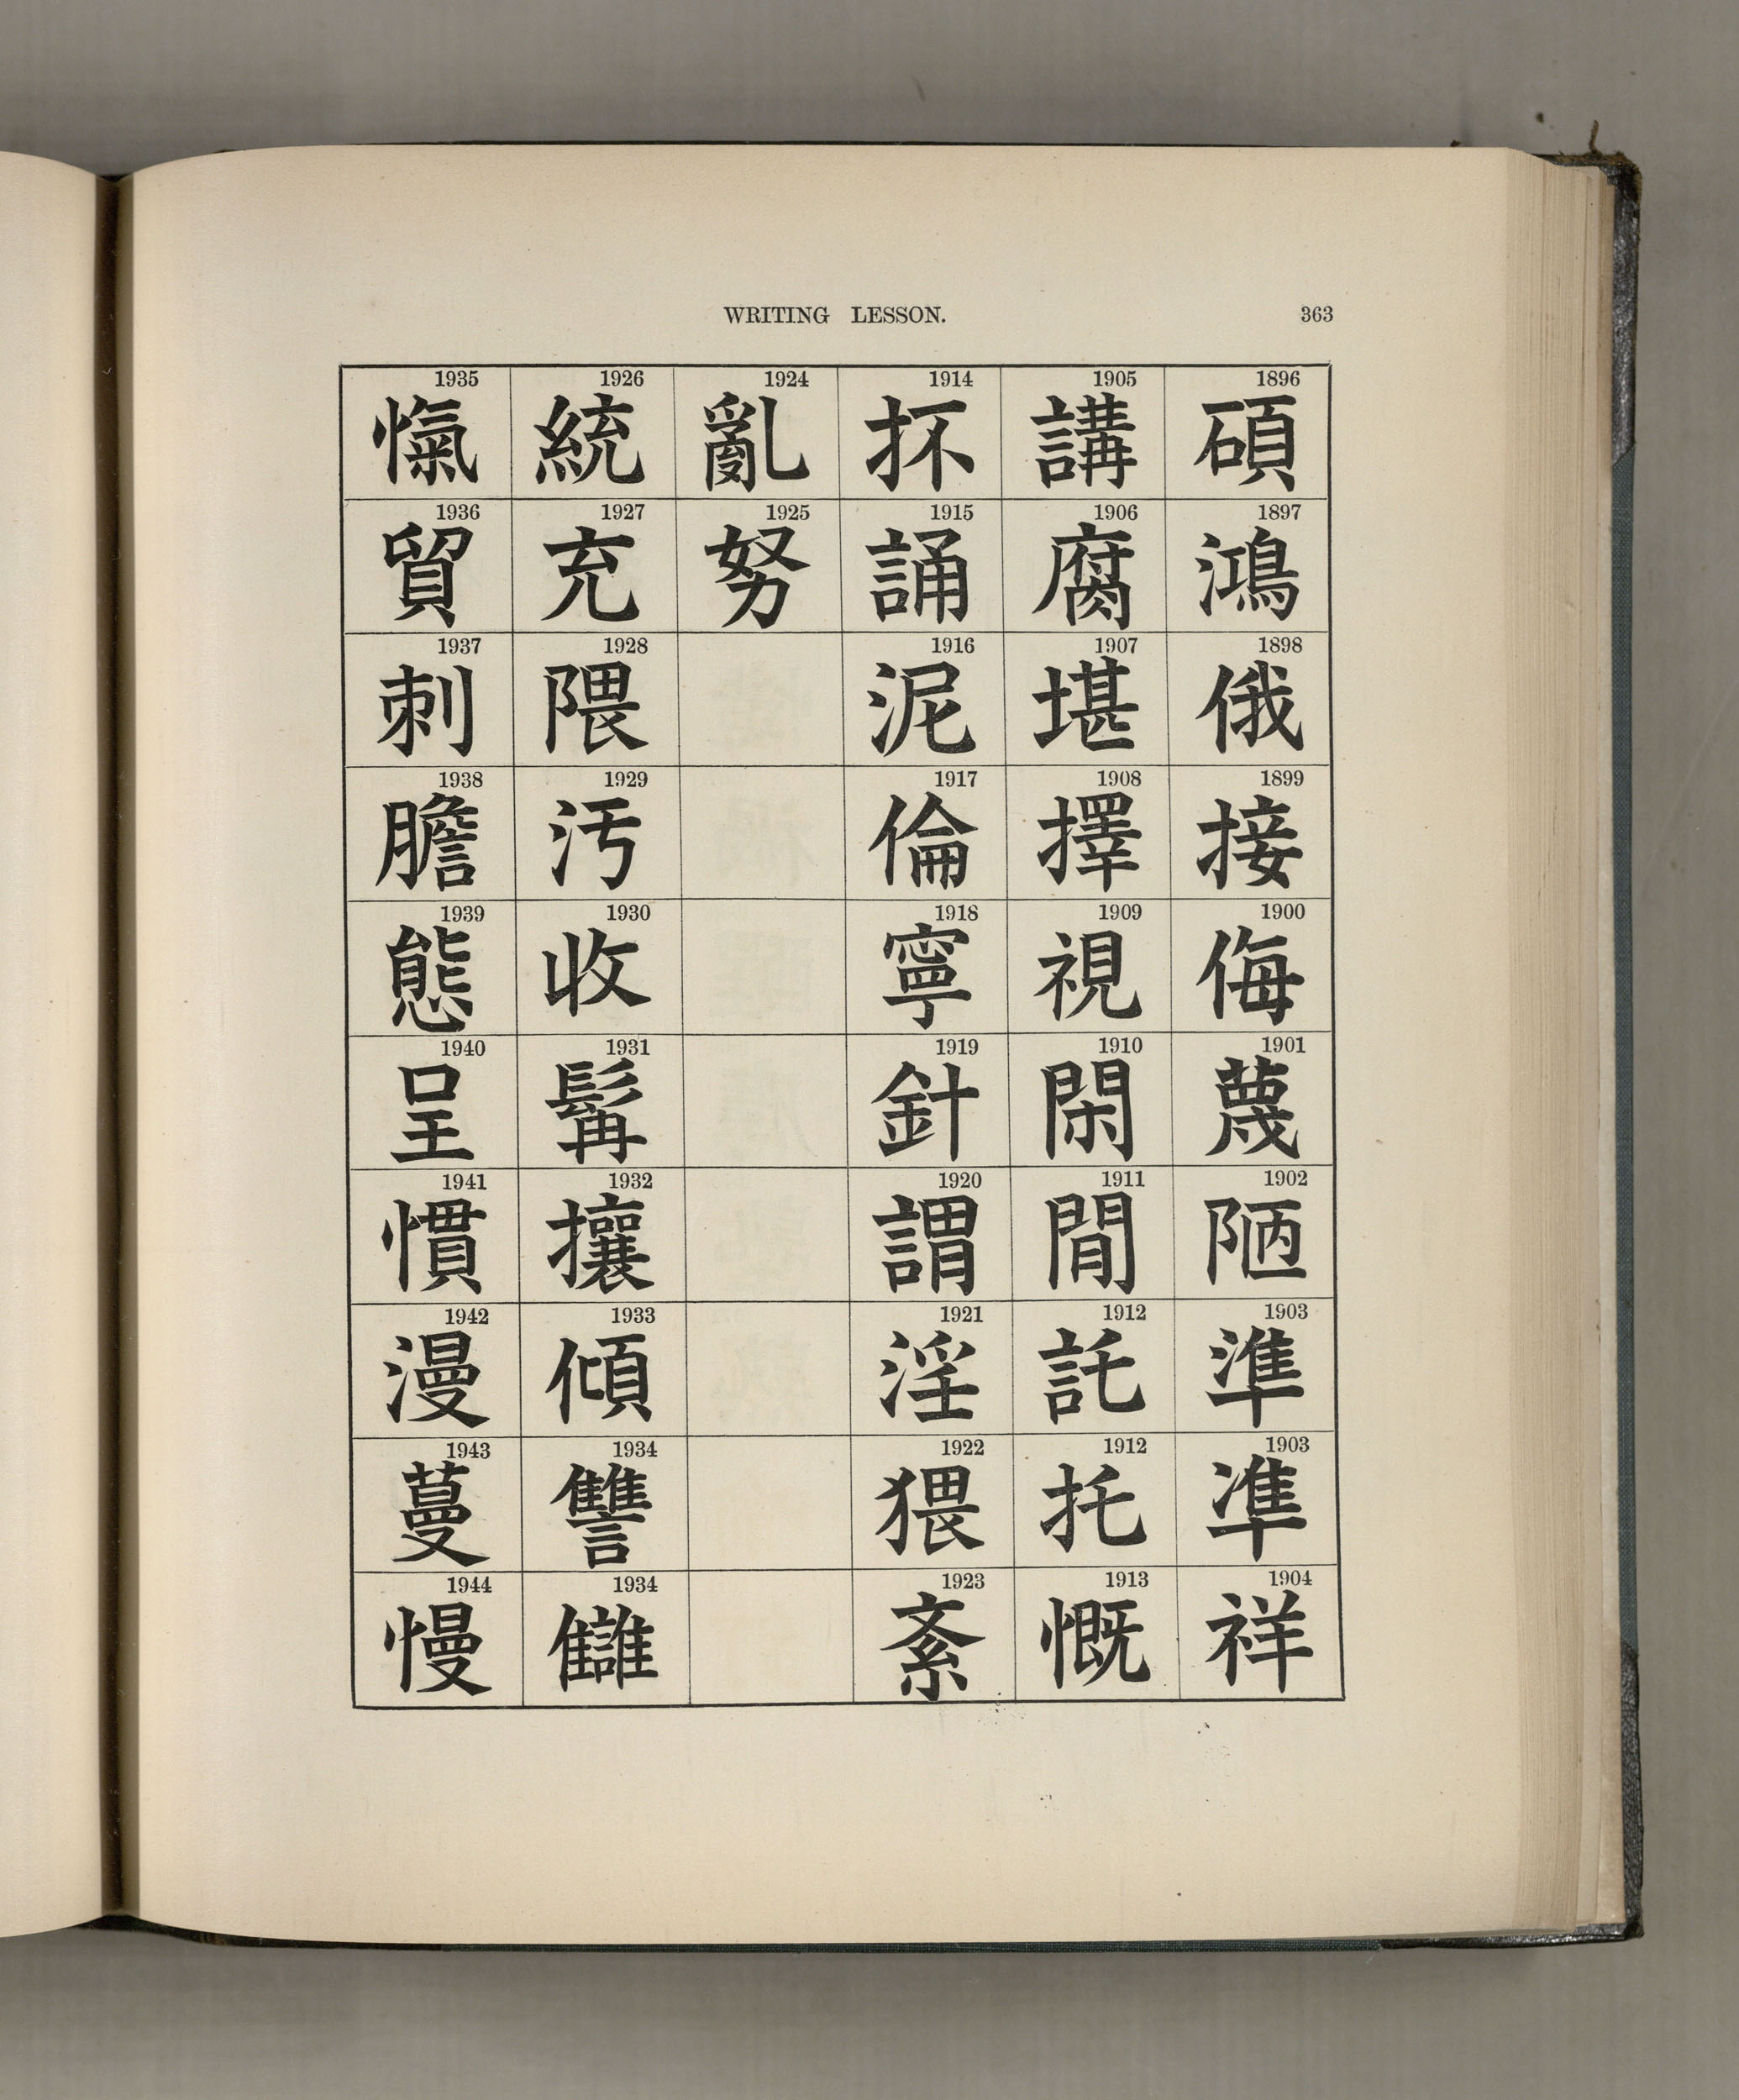 WRITING LESSON. 363
1896 碩
1897 鴻
1898 俄
1899 接
1900 侮
1901 蔑
1902 陋
1903 準
1903 凖
1904 祥
1905 講
1906 腐
1907 堪
1908 擇
1909 視
1910 閑
1911 閒
1912 託
1912 托
1913 慨
1914 抔
1915 誦
1916 泥
1917 倫
1918 寧
1919 針
1920 謂
1921 淫
1922 猥
1923 紊
1924 亂
1925 努
1926 統
1927 充
1928 隈
1929 汚
1930 收
1931 髯
1932 攘
1933 傾
1934 讐
1934 讎
1935 愾
1936 貿
1937 刺
1938 膽
1939 態
1940 呈
1941 慣
1942 漫
1943 蔓
1944 慢